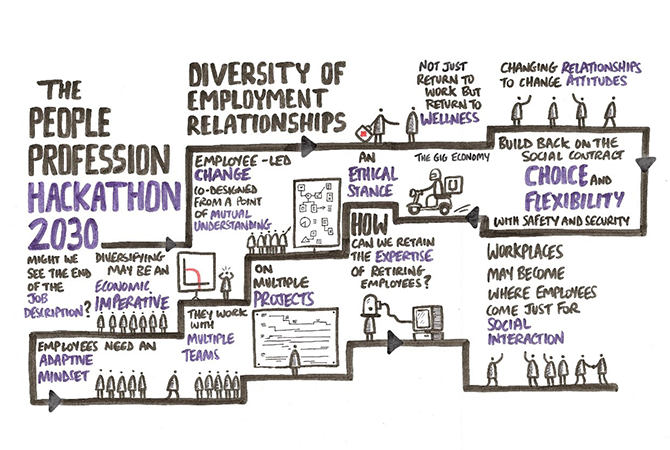 THE
PEOPLE
PROFESSION
HACKATHON
2030
DIVERSITY OF
EMPLOYMENT
RELATIONSHIPS
NOT JUST
RETURN TO
WORK BUT
RETURN TO
WELLNESS
CHANGING RELATIONSHIPS
TO CHANGE ATTITUDES
EMPLOYEE-LED
CHANGE
CO-DESIGNED
FROM A POINT
OF MUTUAL
UNDERSTANDING
AN
ETHICAL
STANCE
THE GIG ECONOMY
BUILD BACK ON THE
SOCIAL CONTRACT
CHOICE AND
FLEXIBILITY
WITH SAFETY AND SECURITY
MIGHT WE
SEE THE END
OF THE
JOB
DESCRIPTION?
DIVERSIFYING
MAY BE AN
ECONOMIC
IMPERATIVE
ON
MULTIPLE
PROJECTS
HOW
CAN WE RETAIN
THE EXPERTISE
OF RETIRING
EMPLOYEES?
WORKPLACES
MAY BECOME
WHERE EMPLOYEES
COME JUST FOR
SOCIAL
INTERACTION
EMPLOYEES NEED AN
ADAPTIVE
MINDSET
THEY WORK
WITH
MULTIPLE
TEAMS